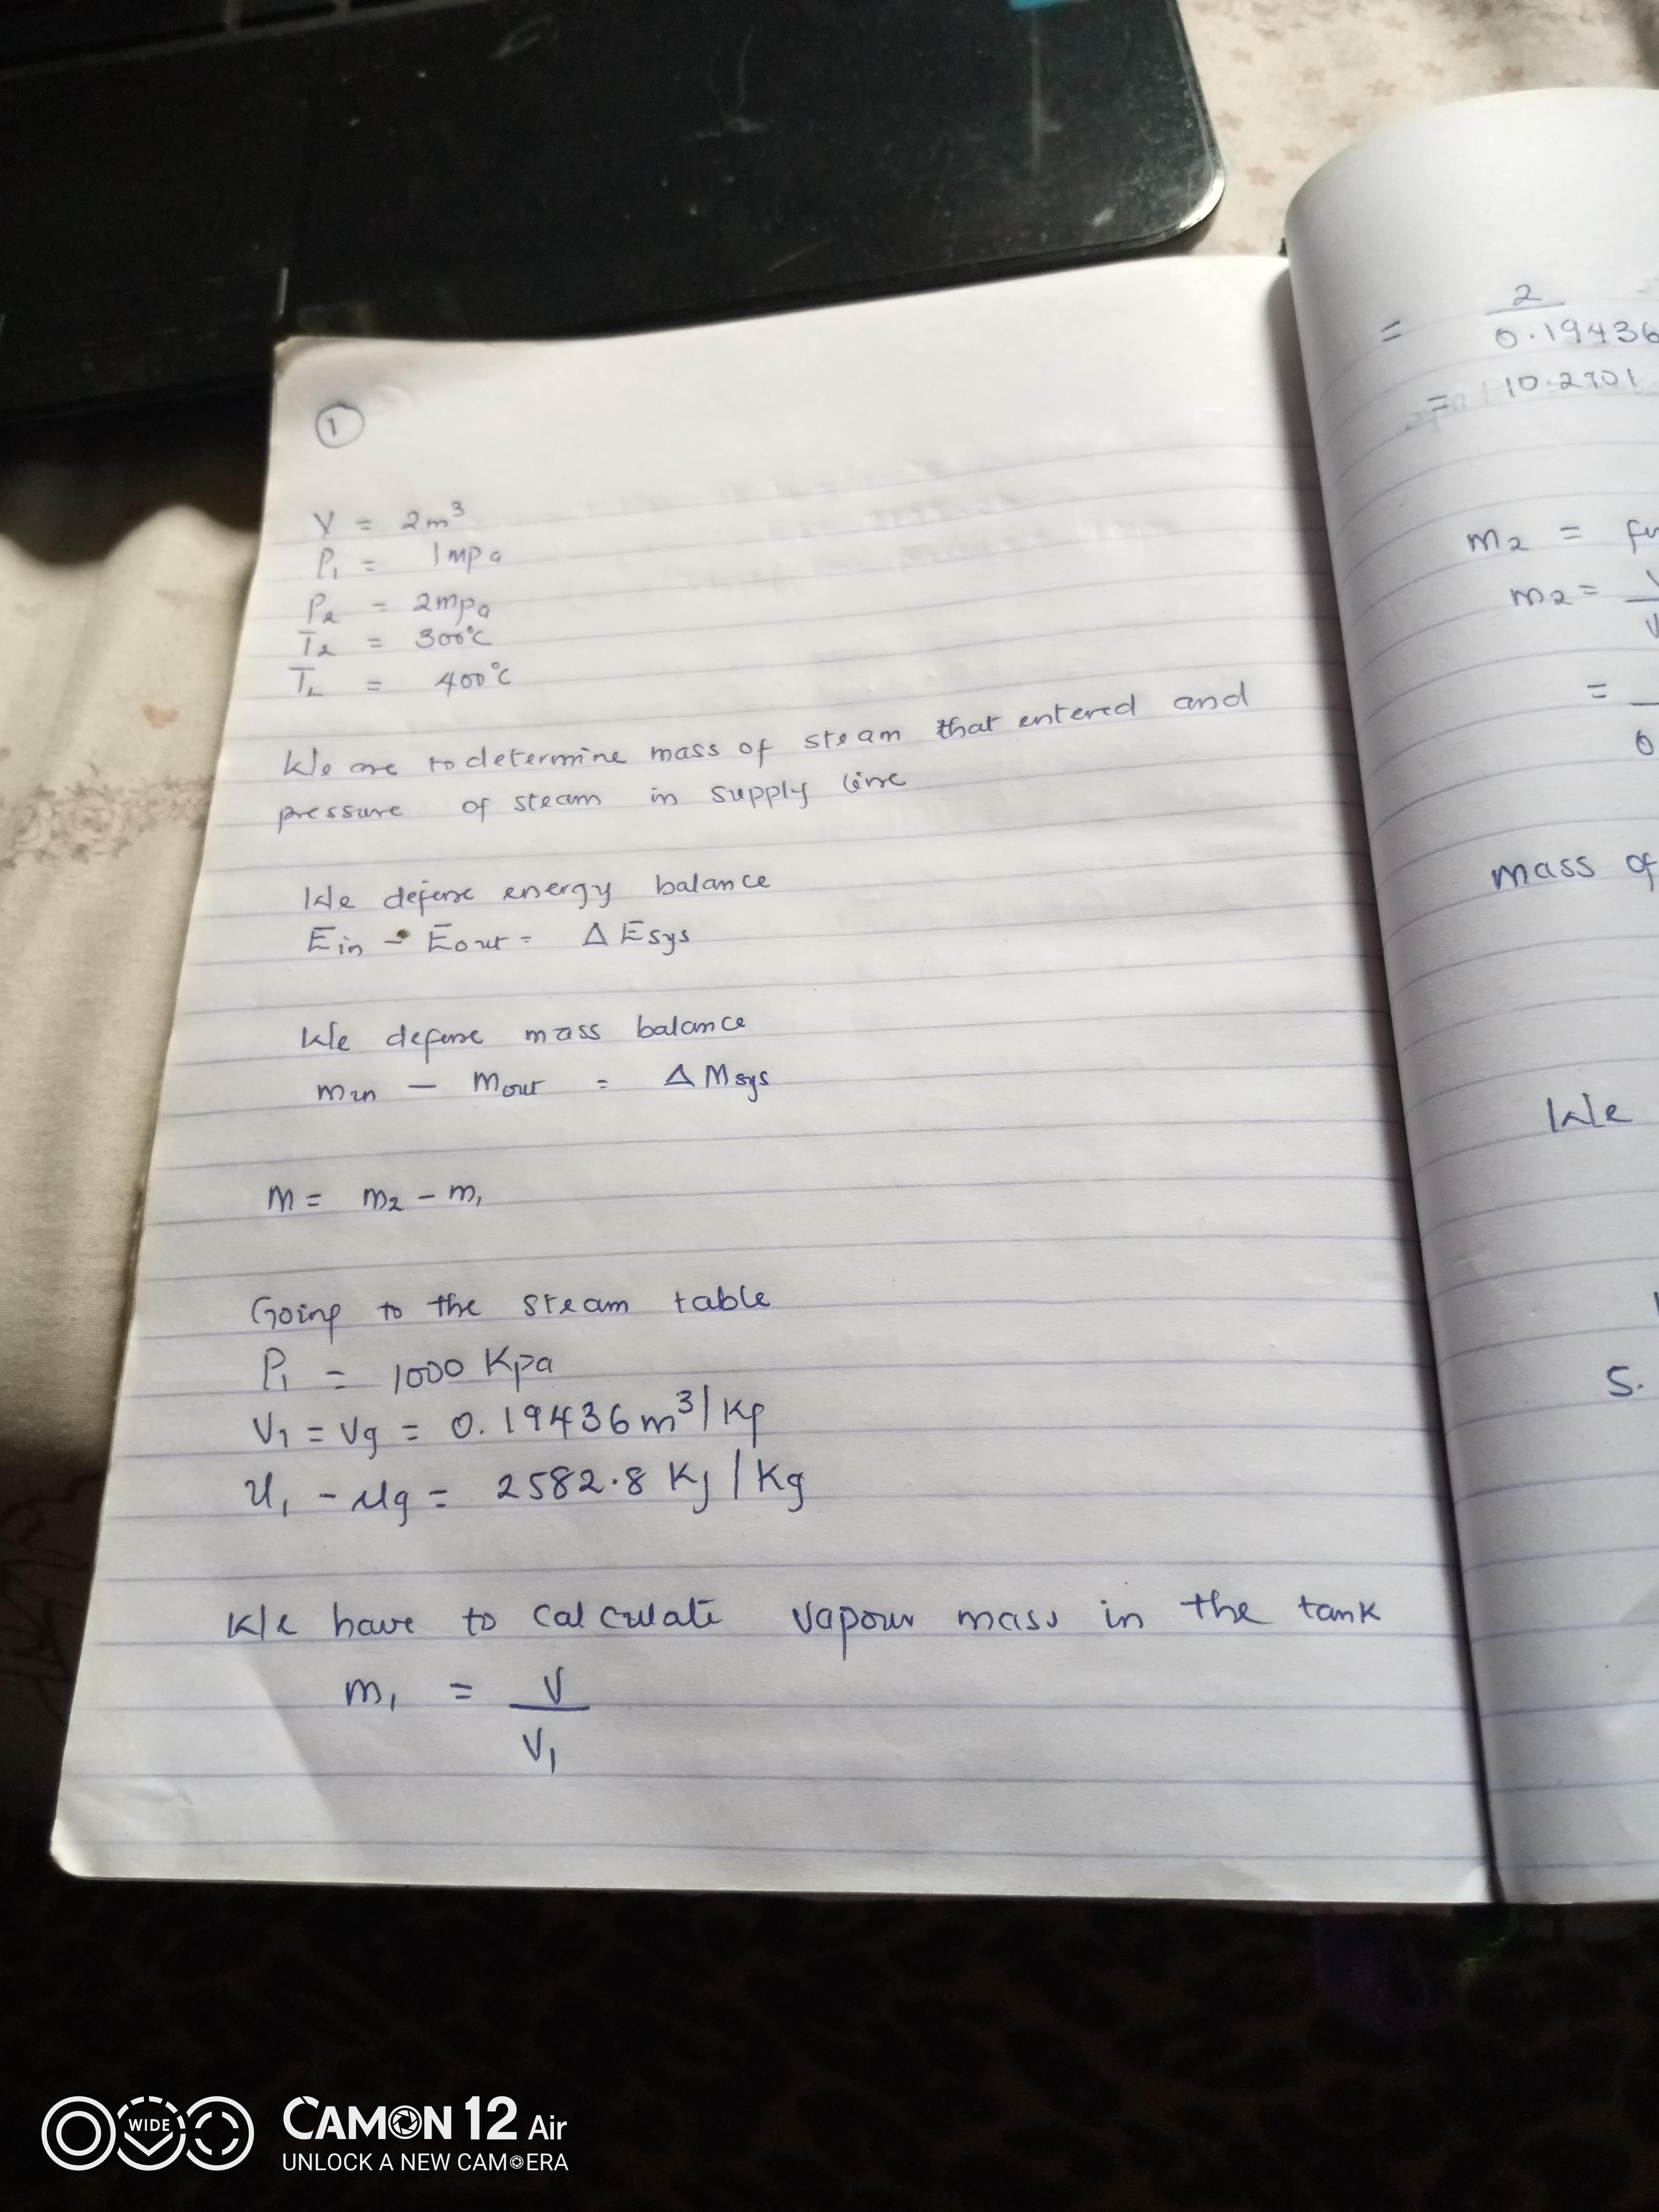 1
V = 2m³
P₁ = 1mpa
P₂ = 2mpa
T₂ = 300°C
T_L = 400°C
We are to determine mass of steam that entered and
pressure of steam in supply line
We define energy balance
Ein - Eout = ΔEsys
We define mass balance
min - Mout = ΔMsys
M = m₂ - m₁
Going to the steam table
P₁ = 1000 Kpa
V₁ = Vg = 0.19436 m³/Kg
U₁ - Ug = 2582.8 Kj/Kg
We have to calculate vapour mass in the tank
m₁ = V
V₁
= 2
0.19436
= 10.2901
m₂ =
m₂ =
=
0
mass of
We
5.
WIDE
CAMON 12 Air
UNLOCK A NEW CAMERA